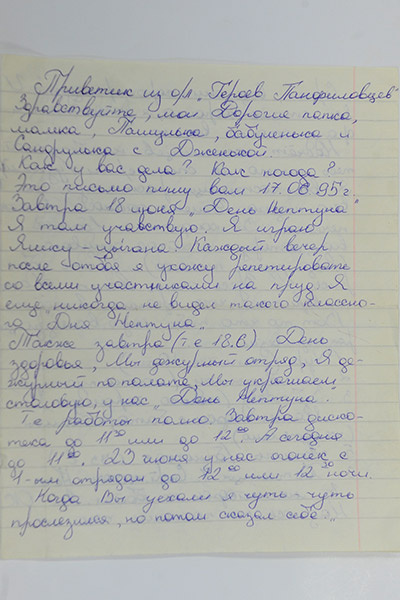 Приветик из о/л „Героев Панфиловцев"
Здравствуйте, мои Дорогие папка,
мамка, Памулька, бабуленька и
Сандрулька с Дженькой.
Как у вас дела? Как погода?
Это письмо пишу вам 17.06 95 г.
Завтра 18 июня „День Нептуна"
Я там учавствую. Я играю
Яшку - цыгана. Каждый вечер
после отбоя я ухожу репетировать
со всеми участниками на пруд. Я
еще никогда не видел такого классно-
го „Дня Нептуна".
Также завтра (т е 18.) День
здоровья, Мы дежурный отряд, Я де-
журный по палате, Мы украшаем
столовую, у нас „День Нептуна".
Те работы полно. Завтра диско-
тека до 11³⁰ или до 12⁰⁰. А сегодня
до 11⁰⁰. 23 июня у нас огонёк с
1-ым отрядом до 12⁰⁰ или 12³⁰ ночи.
Когда Вы уехали я чуть-чуть
прослезился, но потом сказал себе „